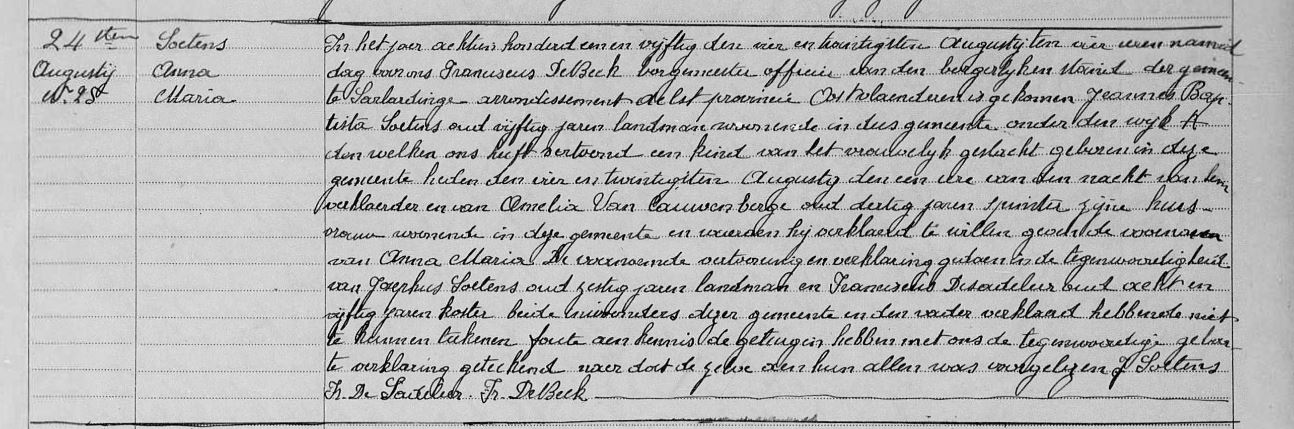 24sten Soetens In het jaer achtien honderd een en vyftig den vier en twintigsten Augusty ten vier uren namid
Augusty Anna dag voor ons Franciscus DeBeck borgemeester officier van den borgerlyken stand der gemeen
N. 25 Maria te Sarlardinge arrondissement Aelst provincie Oostvlaenderen is gekomen Jeannes Bap-
tista Soetens oud vyftig jaren landman woonende in dees gemeente onder den wyk A
den welken ons heeft vertoond een kind van het vrouwelyk geslacht geboren in deze
gemeente heden den vier en twintigsten Augusty den een ure van den nacht van hem
verklaerder en van Amelia Van Cauwenberge oud dertig jaren spinster zyne huis-
vrouw woonende in deze gemeente en waervan hy verklaerd te willen geven de voornamen
van Anna Maria De voornoemde vertooning en verklaring gedaen in de tegenwoordigheid
van Josephus Soetens oud zestig jaren landman en Franciscus Desadeleer oud acht en
vyftig jaren koster beide inwoonders dezer gemeente en den vader verklaerd hebbende niet
te kunnen teekenen foute aen kennis de getuigen hebben met ons de tegenwoordige geboor-
te verklaring geteekend naer dat de zelve aen hun allen was voorgelezen J Soetens
Fr. De Sadeleer. Fr. DeBeck